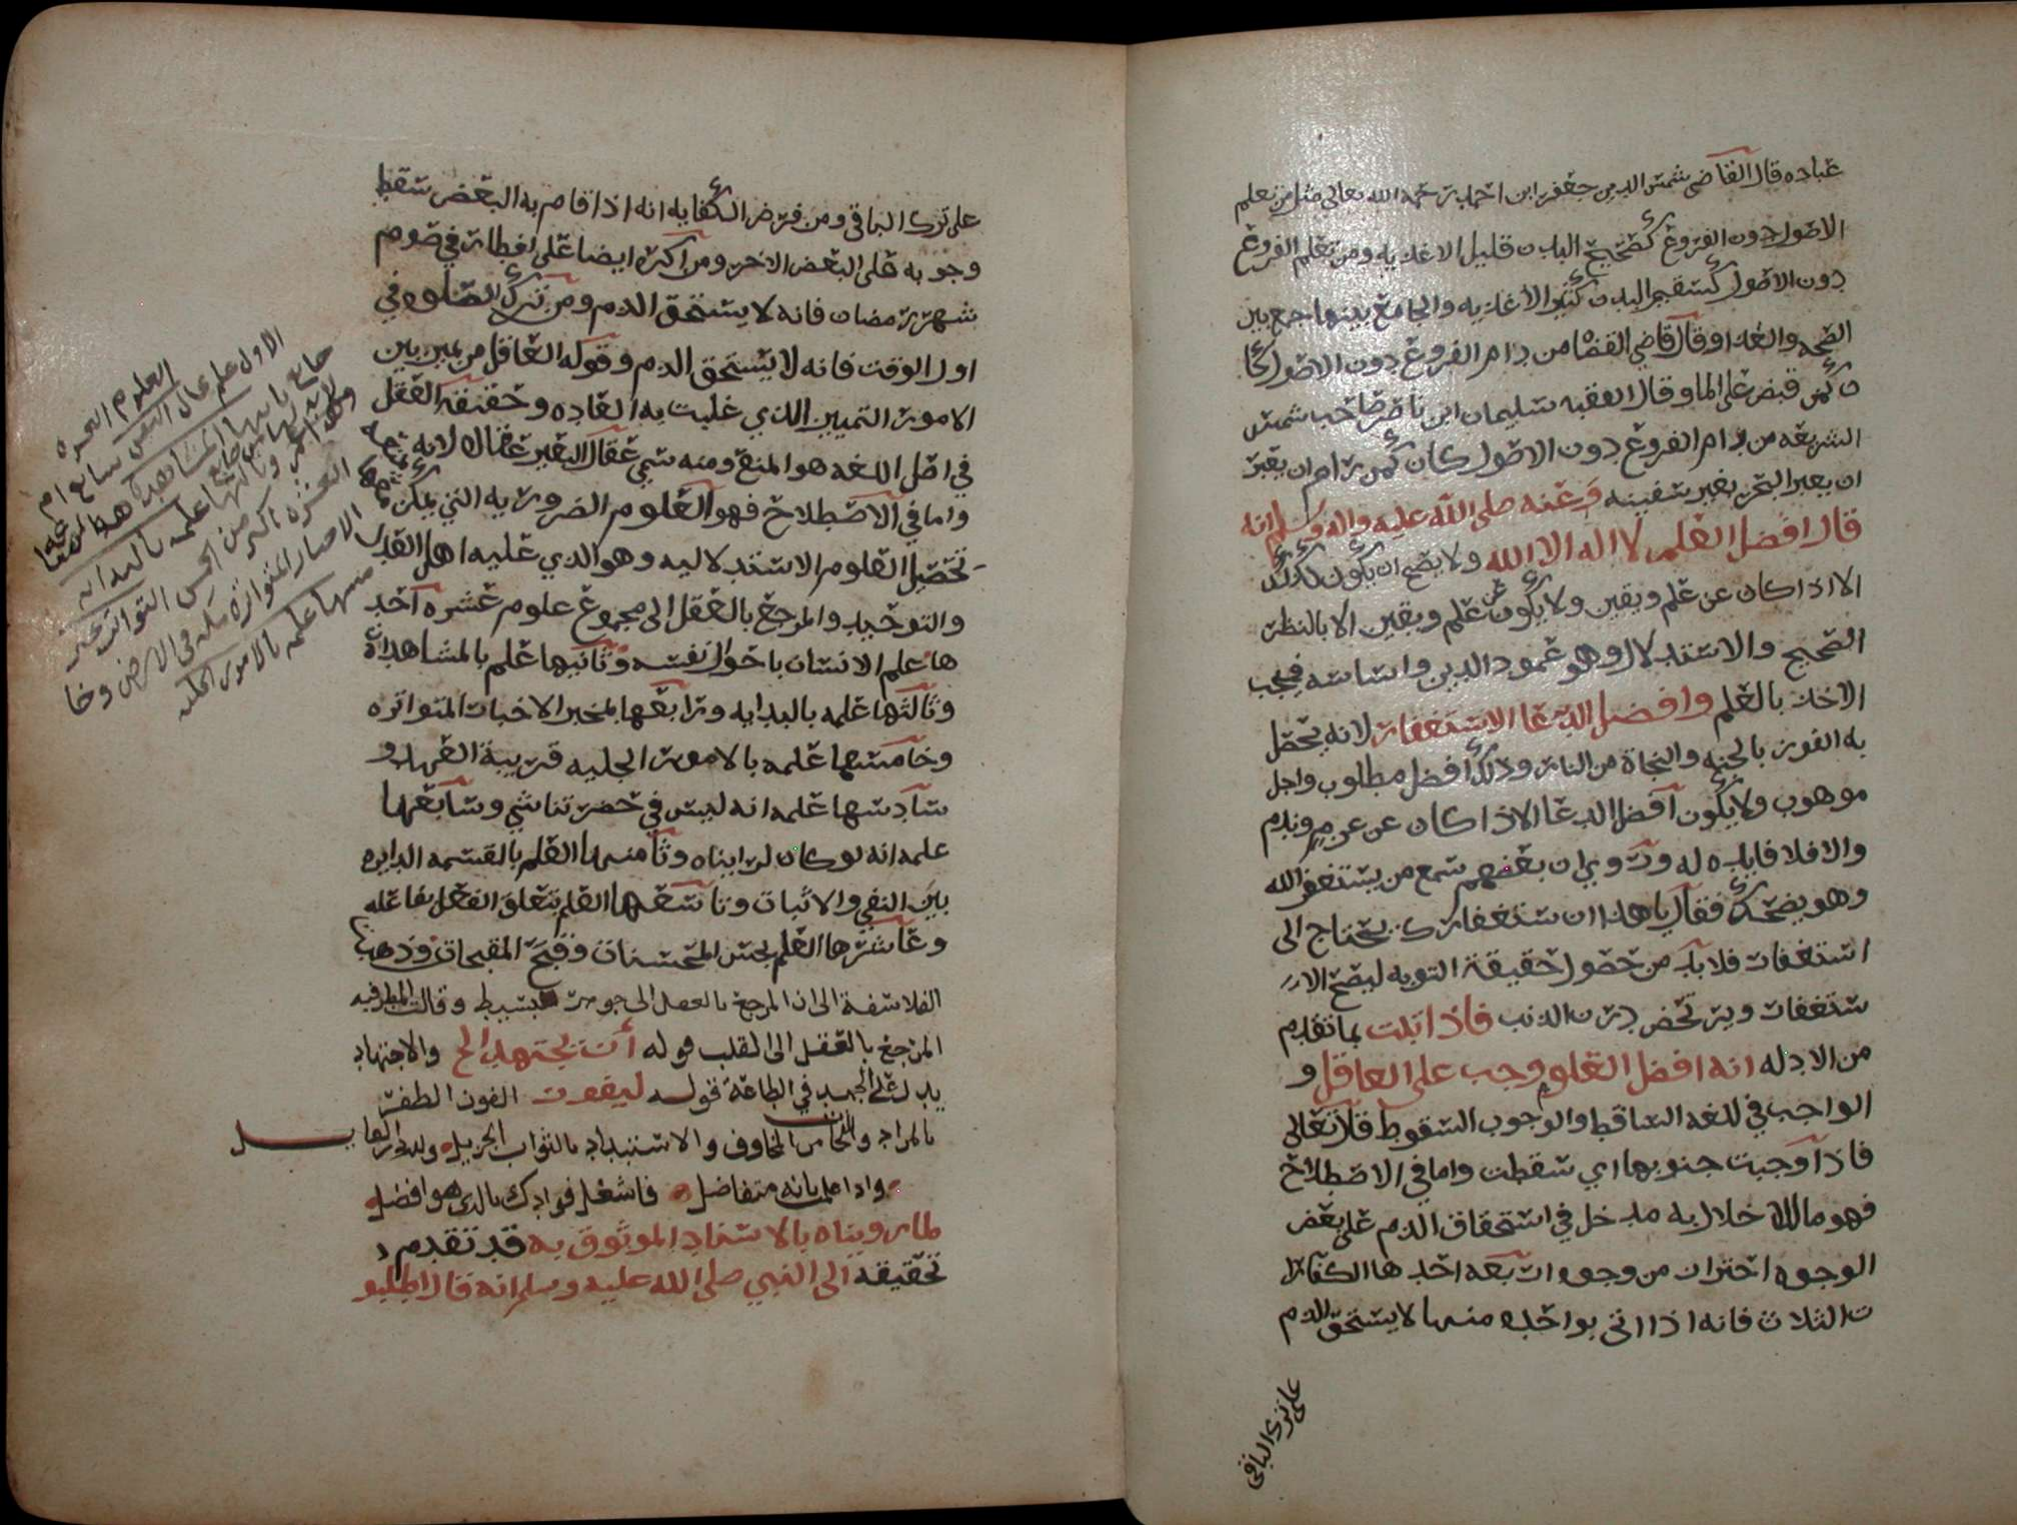 عباده قال القاضي شمس الدين جعفر ابن احمد رحمه الله تعالى مثل من تعلم
الاصول دون الفروع كصحيح البدن قليل الاغذيه ومن تعلم الفروع
دون الاصول كسقيم البدن كثير الاغذيه والجامع بينها جمع بين
الصحه والغذا وقال قاضي القضاه من رام الفروع دون الاصول كا
ن كمن قبض على الما وقال الفقيه سليمان ابن ناصر صاحب شمس
الشريعه من رام الفروع دون الاصول كان كمن رام ان يعبر
ان يعبر البحر بغير سفينه وعنه صلى الله عليه واله وسلم انه
قال افضل العلم لا اله الا الله ولا يصح ان يكون كذلك
الا اذا كان عن علم ويقين ولا يكون عن علم ويقين الا بالنظر
الصحيح والاستدلال وهو عمود الدين واساسه فيجب
الاخذ بالعلم وافضل الدعا الاستغفار لانه يحصل
به الفوز بالجنه والنجاة من النار وذلك افضل مطلوب واجل
موهوب ولا يكون افضل الدعا الا اذا كان عن عزم وندم
والا فلا فايده له وروي ان بعضهم سمع من يستغفر الله
وهو يضحك فقال يا هذا ان ستغفارك يحتاج الى
استغفار فلا بد من حضور حقيقة التوبه ليصح الا
ستغفار ويرحض درن الذنب فاذا ثبت بما تقدم
من الادله انه افضل العلوم وجب على العاقل و
الواجب في اللغه الساقط والوجوب السقوط قال تعالى
فاذا وجبت جنوبها اي سقطت واما في الاصطلاح
فهو ما للاخلال به مدخل في استحقاق الذم على بعض
الوجوه احتراز من وجوه اربعه احدها الكفارا
ت الثلاث فانه اذا اتى بواحده منها لا يستحق الذم
على ترك الباقي
على ترك الباقي ومن فرض الكفايه انه اذا قام به البعض سقط
وجوبه على البعض الاخر ومن اكره ايضا على افطار في صوم
شهر رمضان فانه لا يستحق الذم ومن ترك الصلوه في
اول الوقت فانه لا يستحق الذم وقوله العاقل من يميز بين
الامور التمييز الذي غلبت به العاده وحقيقة العقل
في اصل اللغه هو المنع ومنه سمي عقال البعير عقالا لانه
واما في الاصطلاح فهو العلوم الضروريه التي يمكن
تحصيل العلوم الاستدلاليه وهو الذي عليه اهل العدل
والتوحيد والمرجع بالعقل الى مجموع علوم عشره احد
ها علم الانسان باحوال نفسه وثانيها علم بالمشاهدات
وثالثها علمه بالبدايه ورابعها بمخبر الاخبار المتواتره
وخامسها علمه بالامور الجليه قريبة العهد و
سادسها علمه انه ليس في حضرتنا شي وسابعها
علمه انه لو كان لرايناه وثامنها العلم بالقسمه الدايره
بين النفي والاثبات وتاسعها العلم بتعلق الفعل بفاعله
وعاشرها العلم بحسن المحسنات وقبح المقبحات وذهب
الفلاسفة الى ان المرجع بالعقل الى جوهر بسيط وقالت المطرفيه
المرجع بالعقل الى القلب قوله أن يجتهد الخ والاجتهاد
بذل الجهد في الطاعة قوله ليفوز الفوز الظفر
بالمراد والنجا من المخاوف والاستبداد بالثواب الجزيل ولله در القايل
واذا علمت بانه متفاضل فاشغل فوادك بالذي هو افضل
لما رويناه بالاسناد الموثوق به قد تقدم
تحقيقه الى النبي صلى الله عليه وسلم انه قال اطلبو
العلوم العشره
الاول علم بحال النفس